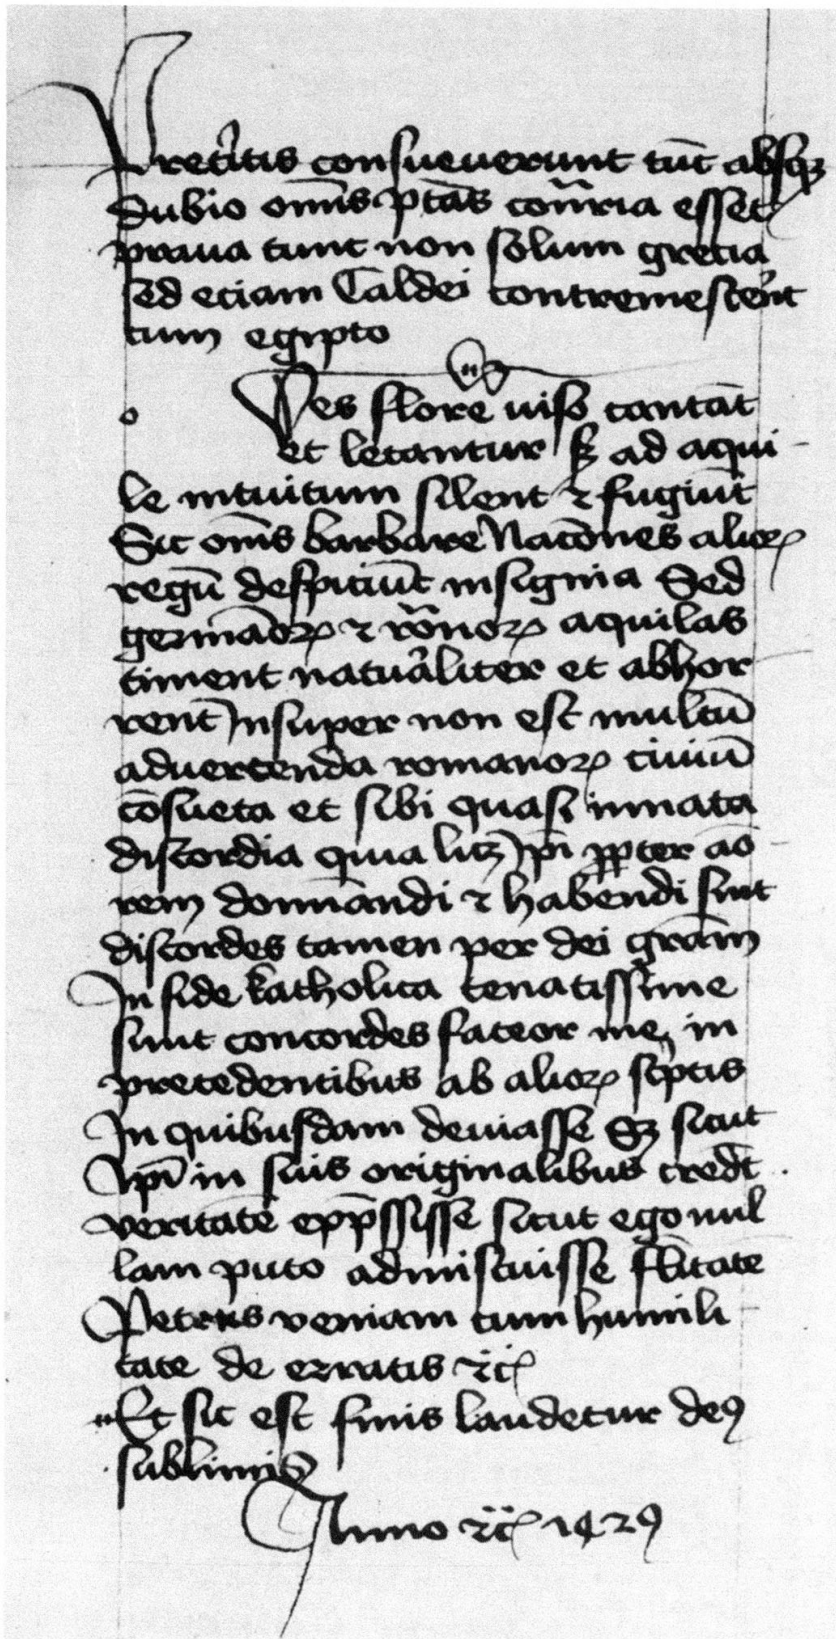 Pret'itis consueuerunt tūc absqꝫ
dubio om̄s ptās cont̄ria esset
praua tunc non solum grecia
sed eciam Caldei contremescer̄nt
cum egipto
Ues flore uiso cantāt
et letantur sꝫ ad aqui-
le intuitum silent ⁊ fugiūt
Sic om̄s barbare Nacōnes alioꝝ
regū despiciūt insignia Sed
germāoꝝ ⁊ rōnoꝝ aquilas
timent natur̄aliter et abhor-
rent Insuper non est multū
aduertenda romanoꝝ ciuiū
cōsueta et sibi quasi innata
discordia quia licꝫ ip̄i ꝓpter amō-
rem dominandi ⁊ habendi sint
discordes tamen per dei gr̄am
In fide katholica tenacissime
sunt concordes fateor me in
precedentibus ab alioꝝ sc'ptis
In quibusdam deuiasse Sꝫ sicut
Ip̄i in suis originalibus cred̄t
veritatē exp̄ssisse sicut ego nul
lam puto admiscuisse fl̄itatē
Petens veniam cum humili-
tate de erratis ⁊c̄
Et sic est finis laudetur deꝰ
sublimis
Anno ⁊c̄ 1429